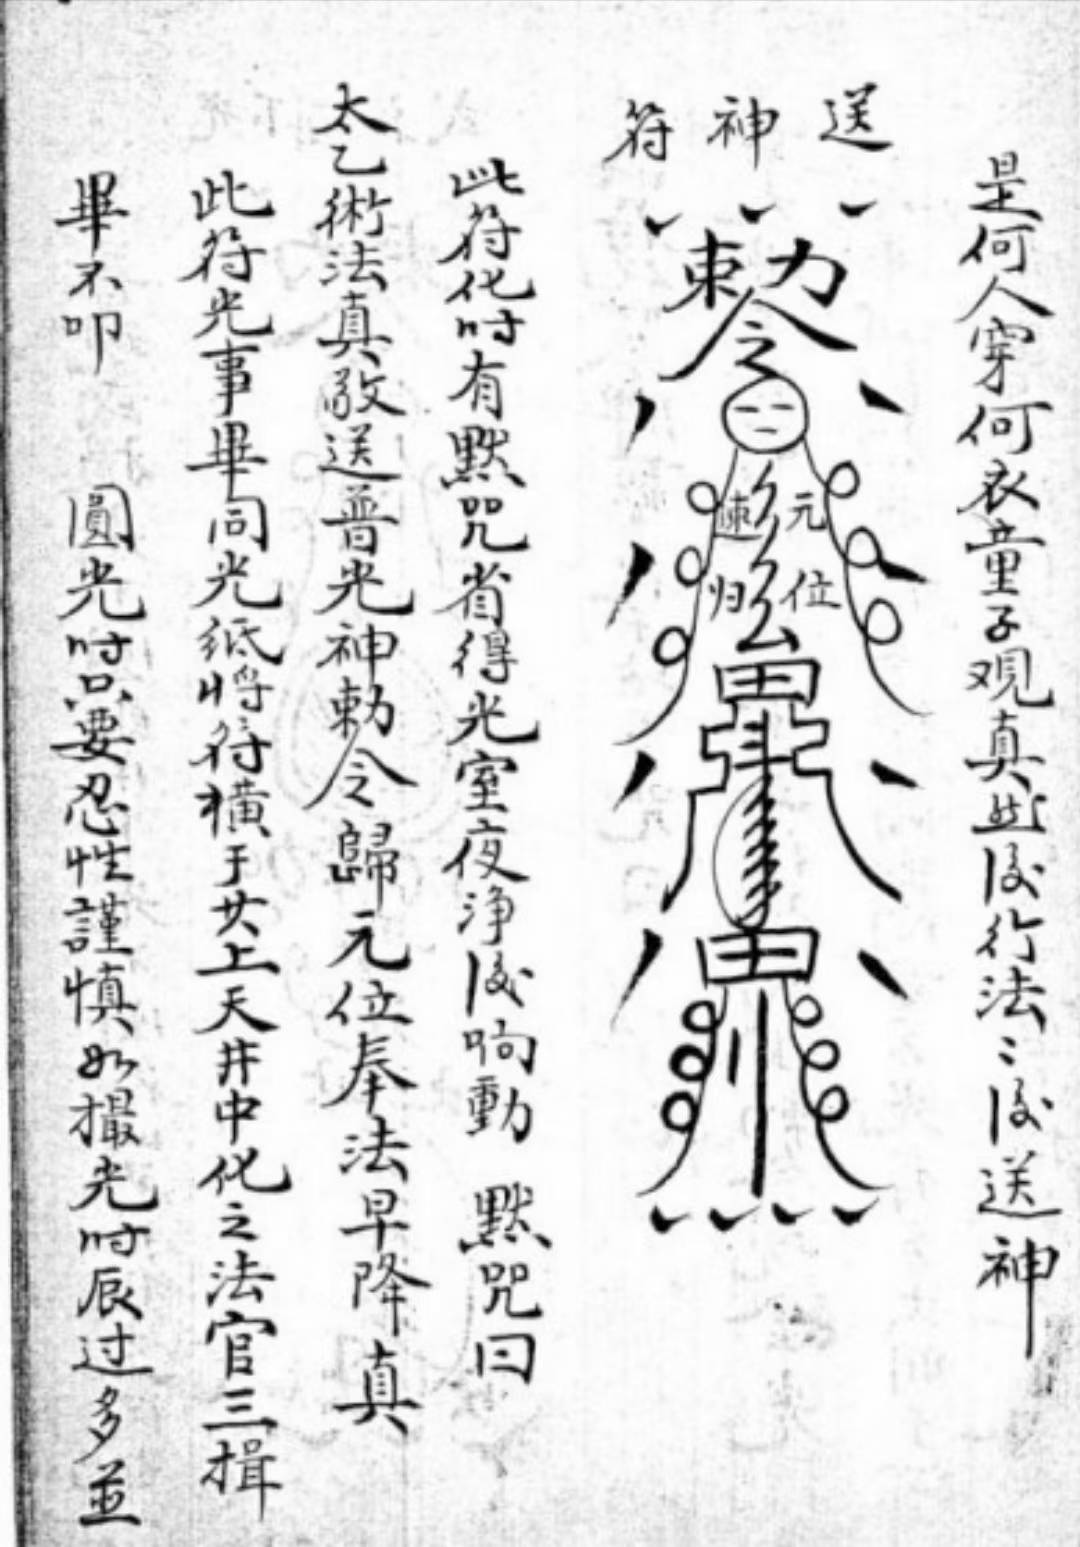 是何人穿何衣童子观真些後行法〻後送神
送神符
勅令
元位
速归
此符化时有默咒省得光室夜净後响動 默咒曰
太乙術法真敬送普光神勅令歸元位奉法早降真
此符光事畢同光纸将符横于共上天井中化之法官三揖
畢不叩 圓光时只要忍性謹慎如撮光时辰过多並